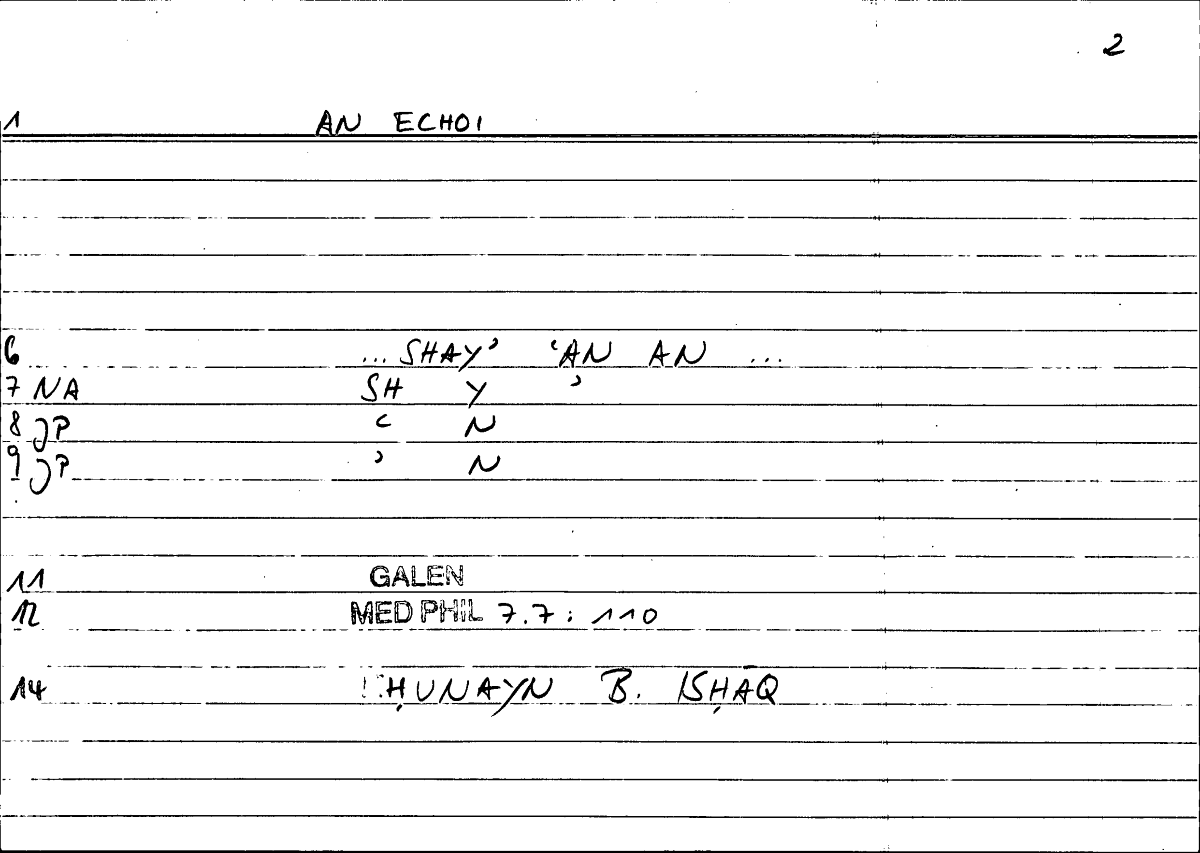 2
1 AN ECHOI
6 ... SHAY’ ‘AN AN ...
7 NA SH Y ’
8 JP ‘ N
9 JP ’ N
11 GALEN
12 MED PHIL 7.7 : 110
14 ḤUNAYN B. ISḤĀQ